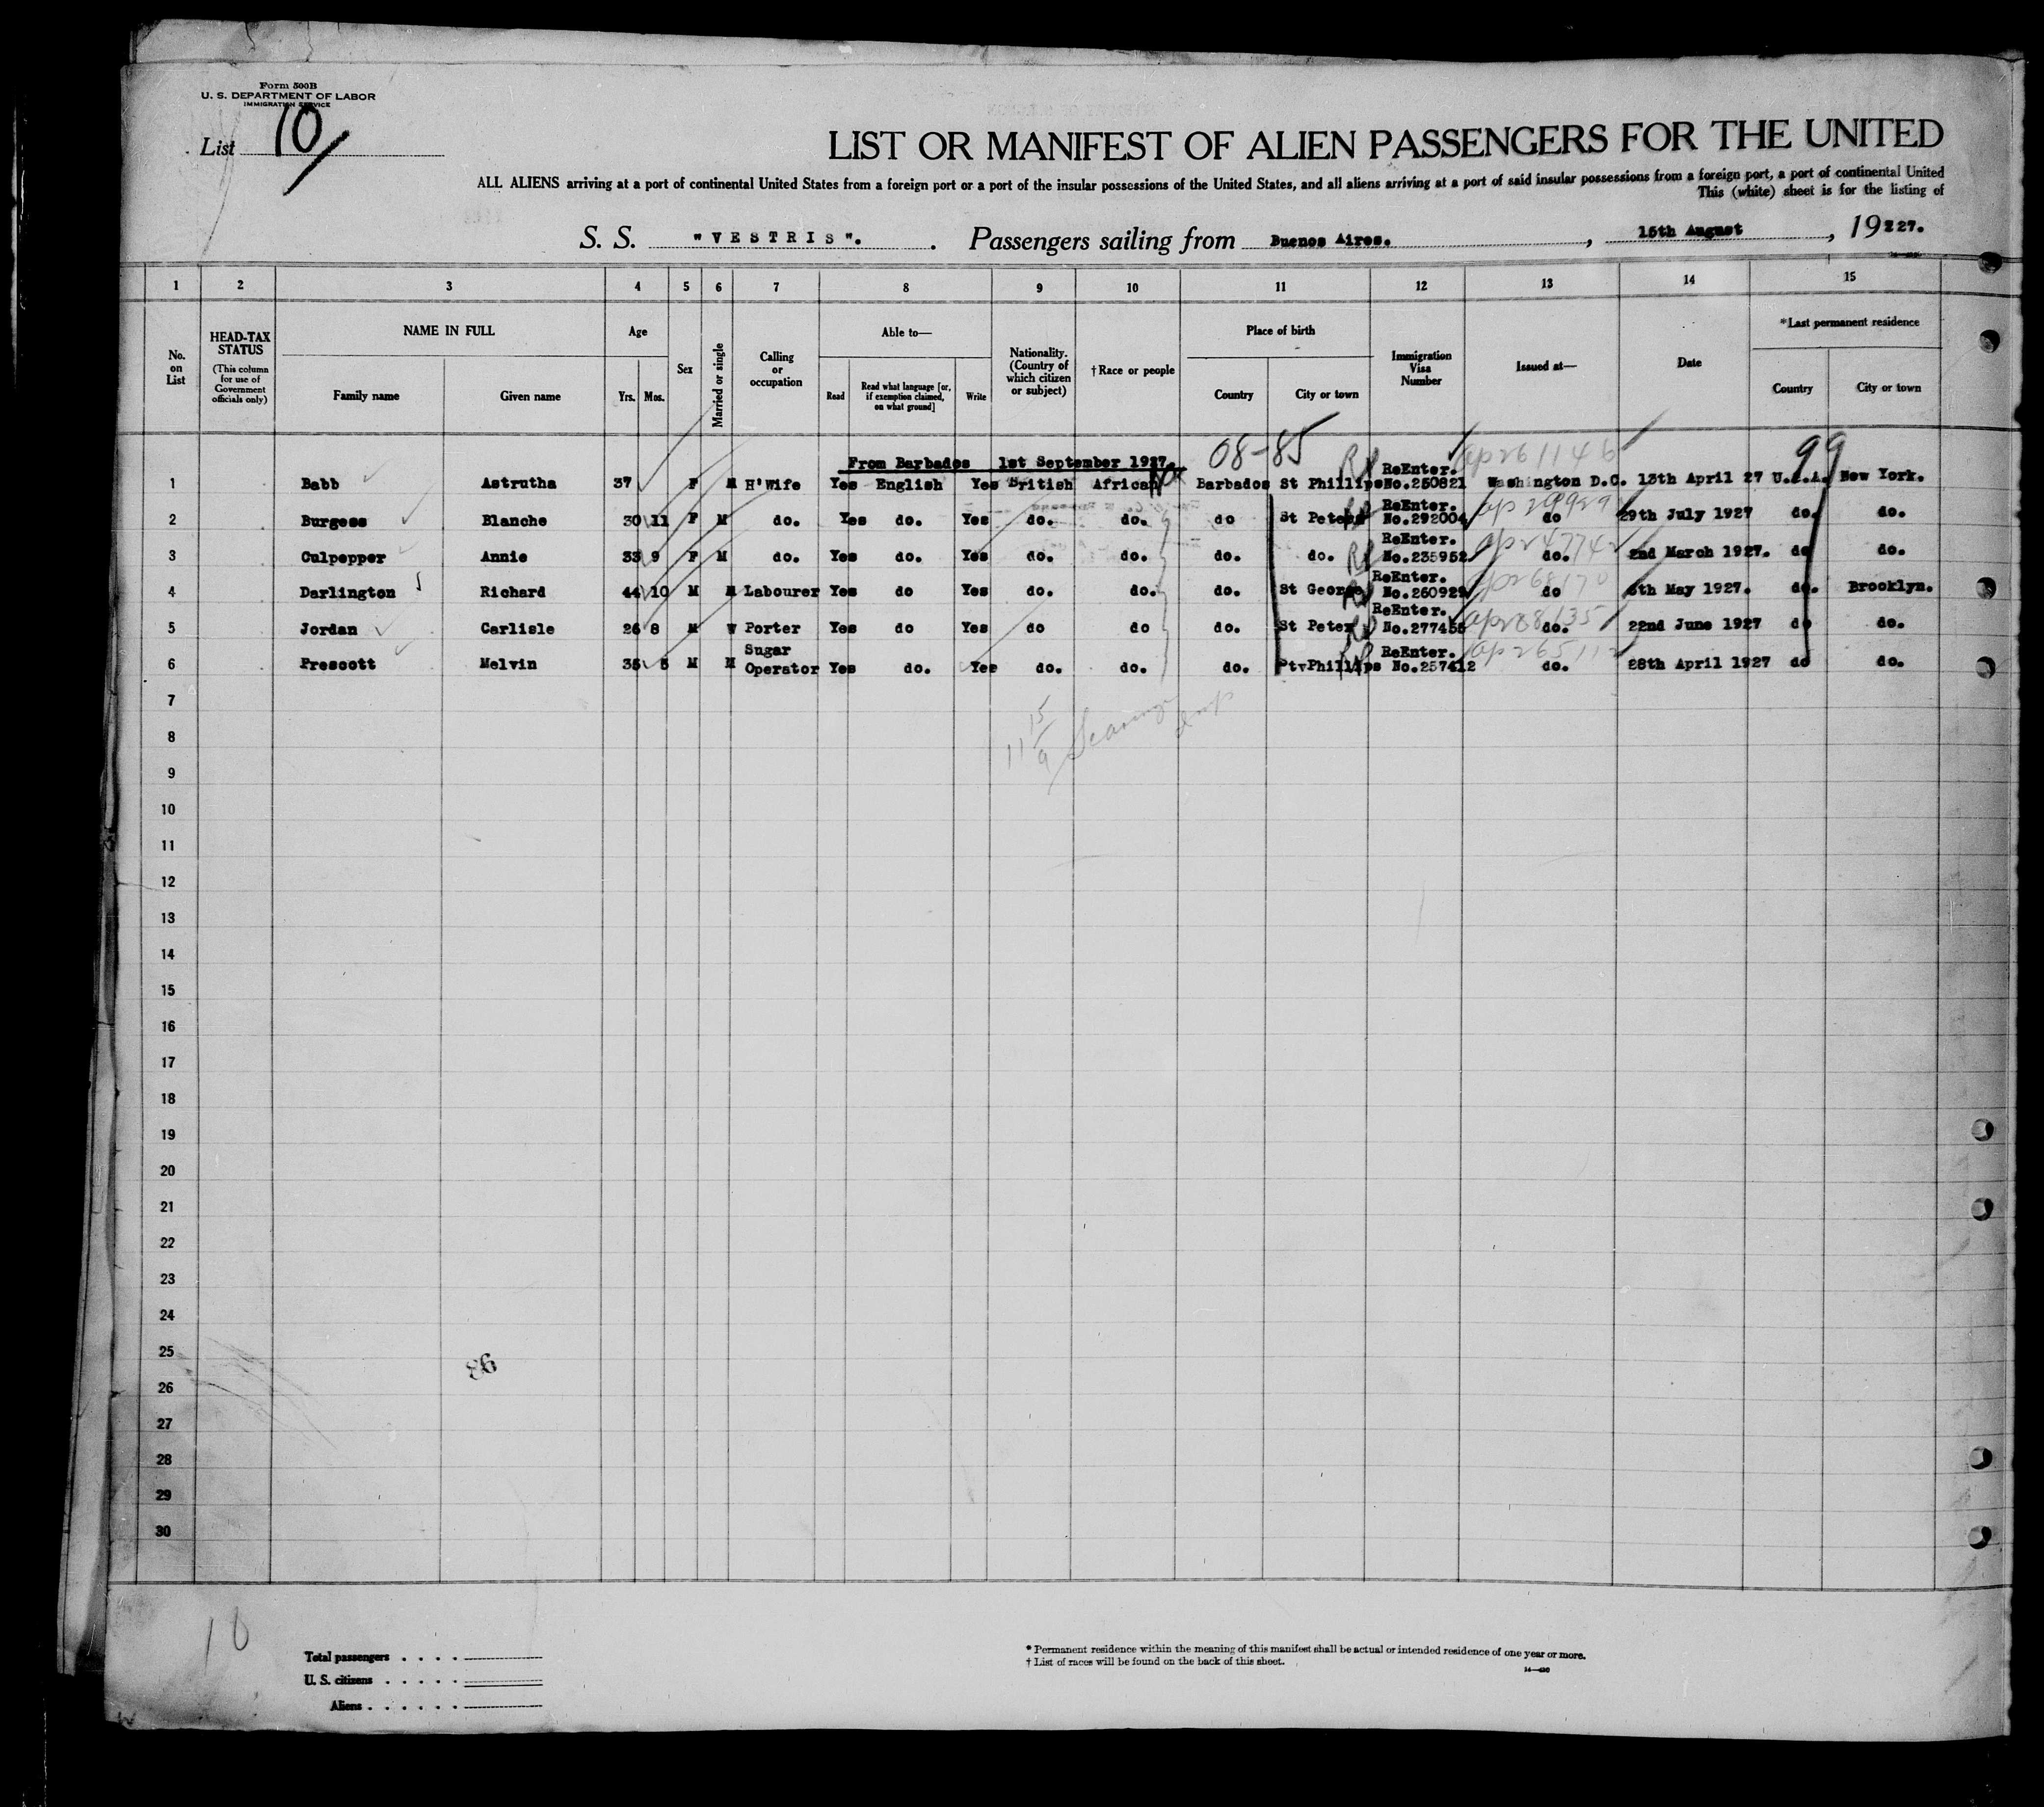 Form 500B
U. S. DEPARTMENT OF LABOR
IMMIGRATION SERVICE
List 10
LIST OR MANIFEST OF ALIEN PASSENGERS FOR THE UNITED
ALL ALIENS arriving at a port of continental United States from a foreign port or a port of the insular possessions of the United States, and all aliens arriving at a port of said insular possessions from a foreign port, a port of continental United
This (white) sheet is for the listing of
S. S. "VESTRIS". . Passengers sailing from Buenos Aires. , 15th August , 19227.
1 2 3 4 5 6 7 8 9 10 11 12 13 14 15
No. on List
HEAD-TAX STATUS
(This column for use of Government officials only)
NAME IN FULL
Family name Given name
Age
Yrs. Mos.
Sex
Married or single
Calling or occupation
Able to—
Read
Read what language [or, if exemption claimed, on what ground]
Write
Nationality. (Country of which citizen or subject)
†Race or people
Place of birth
Country City or town
Immigration Visa Number
Issued at—
Date
*Last permanent residence
Country City or town
From Barbados 1st September 1927. 08-85 99
1 Babb Astrutha 37 F M H'Wife Yes English Yes British African Barbados St Phillips ReEnter. No.250821 ap261146 Washington D.C. 13th April 27 U.S.A. New York.
2 Burgess Blanche 30 11 F M do. Yes do. Yes do. do. do St Peters ReEnter. No.292004 do 29th July 1927 do. do.
3 Culpepper Annie 33 9 F M do. Yes do. Yes do. do. do. do. ReEnter. No.235952 do. 2nd March 1927. do do.
4 Darlington Richard 44 10 M M Labourer Yes do Yes do. do. do. St George ReEnter. No.260929 do May 1927. do. Brooklyn.
5 Jordan Carlisle 26 8 M W Porter Yes do Yes do do do. St Peter ReEnter. No.277455 do. 22nd June 1927 do do.
6 Prescott Melvin 35 5 M M Sugar Operator Yes do. Yes do. do. do. ReEnter. No.257412 ap265112 do. 28th April 1927 do do.
7
8
9
10
11
12
13
14
15
16
17
18
19
20
21
22
23
24
25
26
27
28
29
30
10
Total passengers . . . .
U. S. citizens . . . . .
Aliens . . . . . .
* Permanent residence within the meaning of this manifest shall be actual or intended residence of one year or more.
† List of races will be found on the back of this sheet.